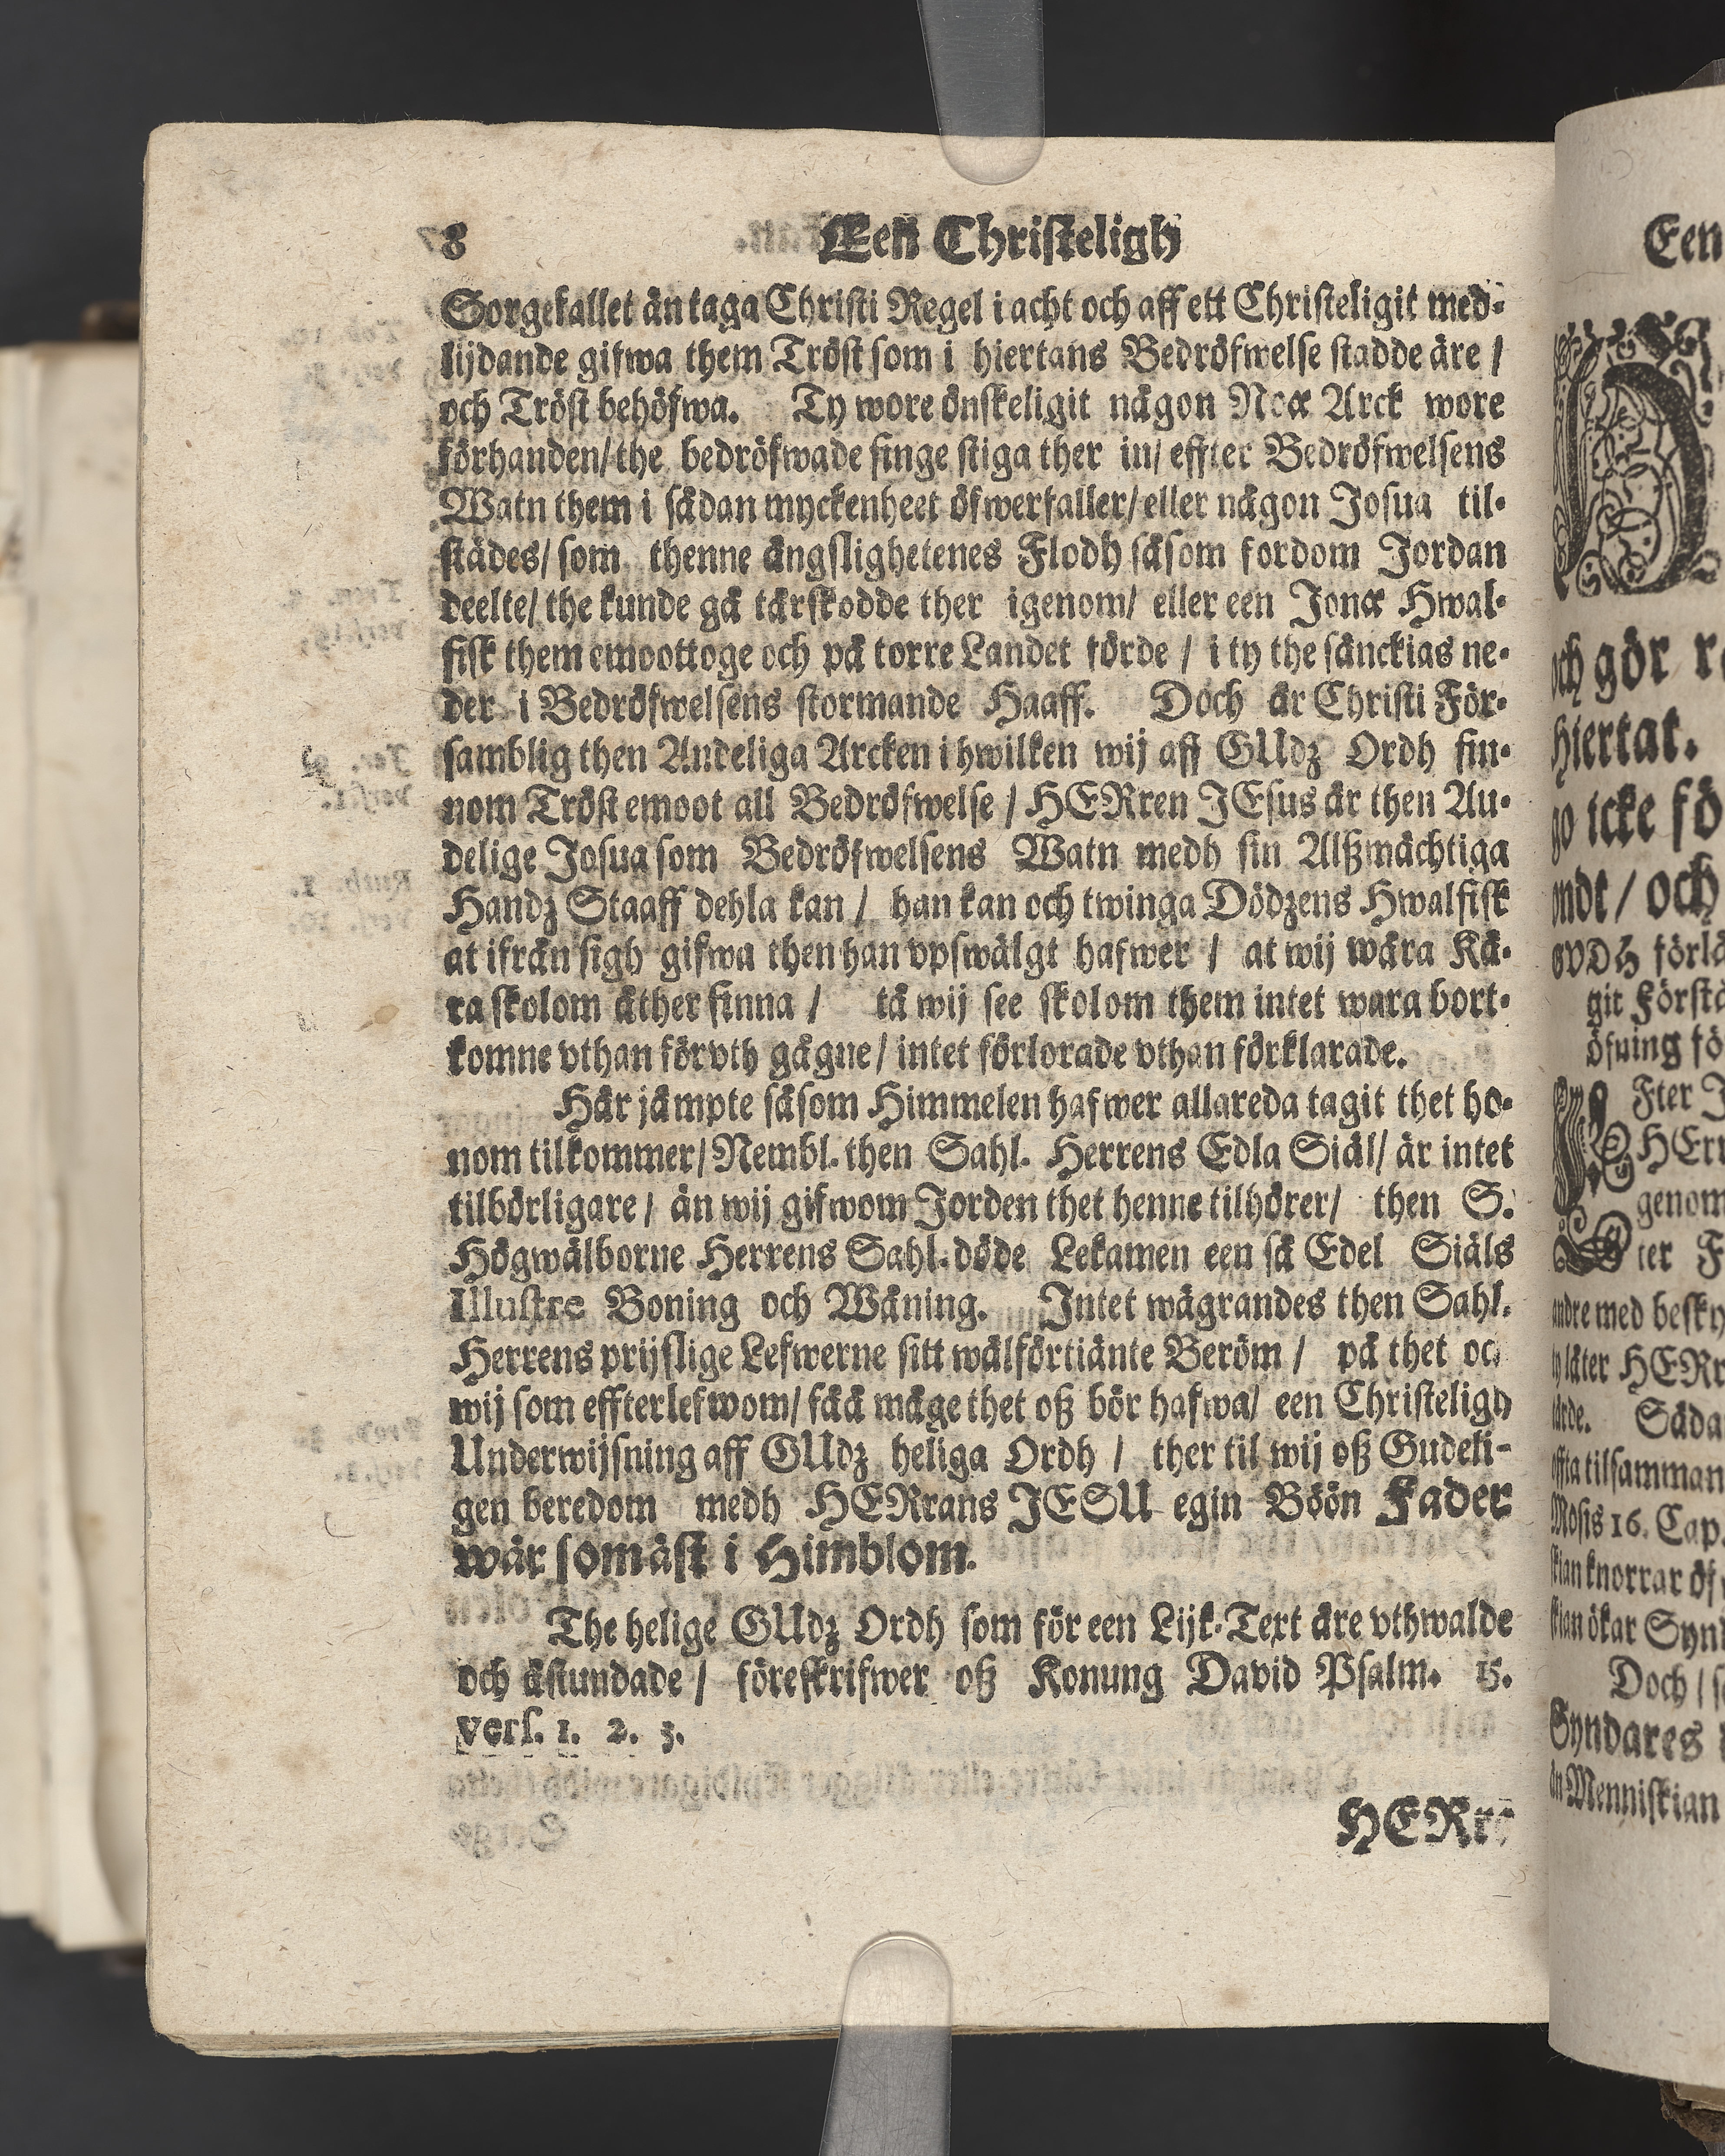 8 Een Christeligh
Sorgefallet än taga Christi Regel i acht och aff ett Christeligit med-
lijdande gifwa them Tröst som i hiertans Bedröfwelse stadde äre /
och Tröst behöfwa. Ty wore önskeligit någon Noæ Arck wore
förhanden/ the bedröfwade finge stiga ther in/ effter Bedröfwelsens
Watn them i sådan myckenheet öfwerfaller/ eller någon Josua til-
städes/ som thenne ängslighetenes Flodh såsom fordom Jordan
deelte/ the kunde gå tärskodde ther igenom/ eller een Jonæ Hwal-
fisk them emoottoge och på torre Landet förde / i ty the sänckias ne-
der i Bedröfwelsens stormande Haaff. Doch är Christi För-
samblig then Andeliga Arcken i hwilken wij aff GUdz Ordh fin-
nom Tröst emoot all Bedröfwelse / HERren JEsus är then An-
delige Josua som Bedröfwelsens Watn medh sin Alßmächtiga
Handz Staaff dehla kan / han kan och twinga Dödzens Hwalfisk
at ifrån sigh gifwa then han vpswälgt hafwer / at wij wåra Kä-
ra skolom åther finna / tå wij see skolom them intet wara bort-
komne vthan förvth gågne/ intet förlorade vthan förklarade.
Här jämpte såsom Himmelen hafwer allareda tagit thet ho-
nom tilkommer/ Nembl. then Sahl. Herrens Edla Siäl/ är intet
tilbörligare/ än wij gifwom Jorden thet henne tilhörer/ then S.
Högwälborne Herrens Sahl. döde Lekamen een så Edel Siäls
Illustre Boning och Wåning. Intet wägrandes then Sahl.
Herrens prijslige Lefwerne sitt wälförtiänte Beröm / på thet och
wij som effterlefwom/ fåå måge thet oß bör hafwa/ een Christeligh
Underwijsning aff GUdz heliga Ordh / ther til wij oß Gudeli-
gen beredom medh HERrans JESU egin Böön Fader
wår som äst i Himblom.
The helige GUdz Ordh som för een Lijk-Text äre vthwalde
och åstundade / föreskrifwer oß Konung David Psalm. 15.
vers. 1. 2. 3.
HERre
Een
och gör
hiertat.
icke
/ och
förlå
git Förstå
öfning
Fter
HErr
genom
ter
andre med
låter HERr
Såda
offta tilsamman
Mosis 16. Cap.
knorrar
ökar Synd
Doch /
Syndares
Menniskian